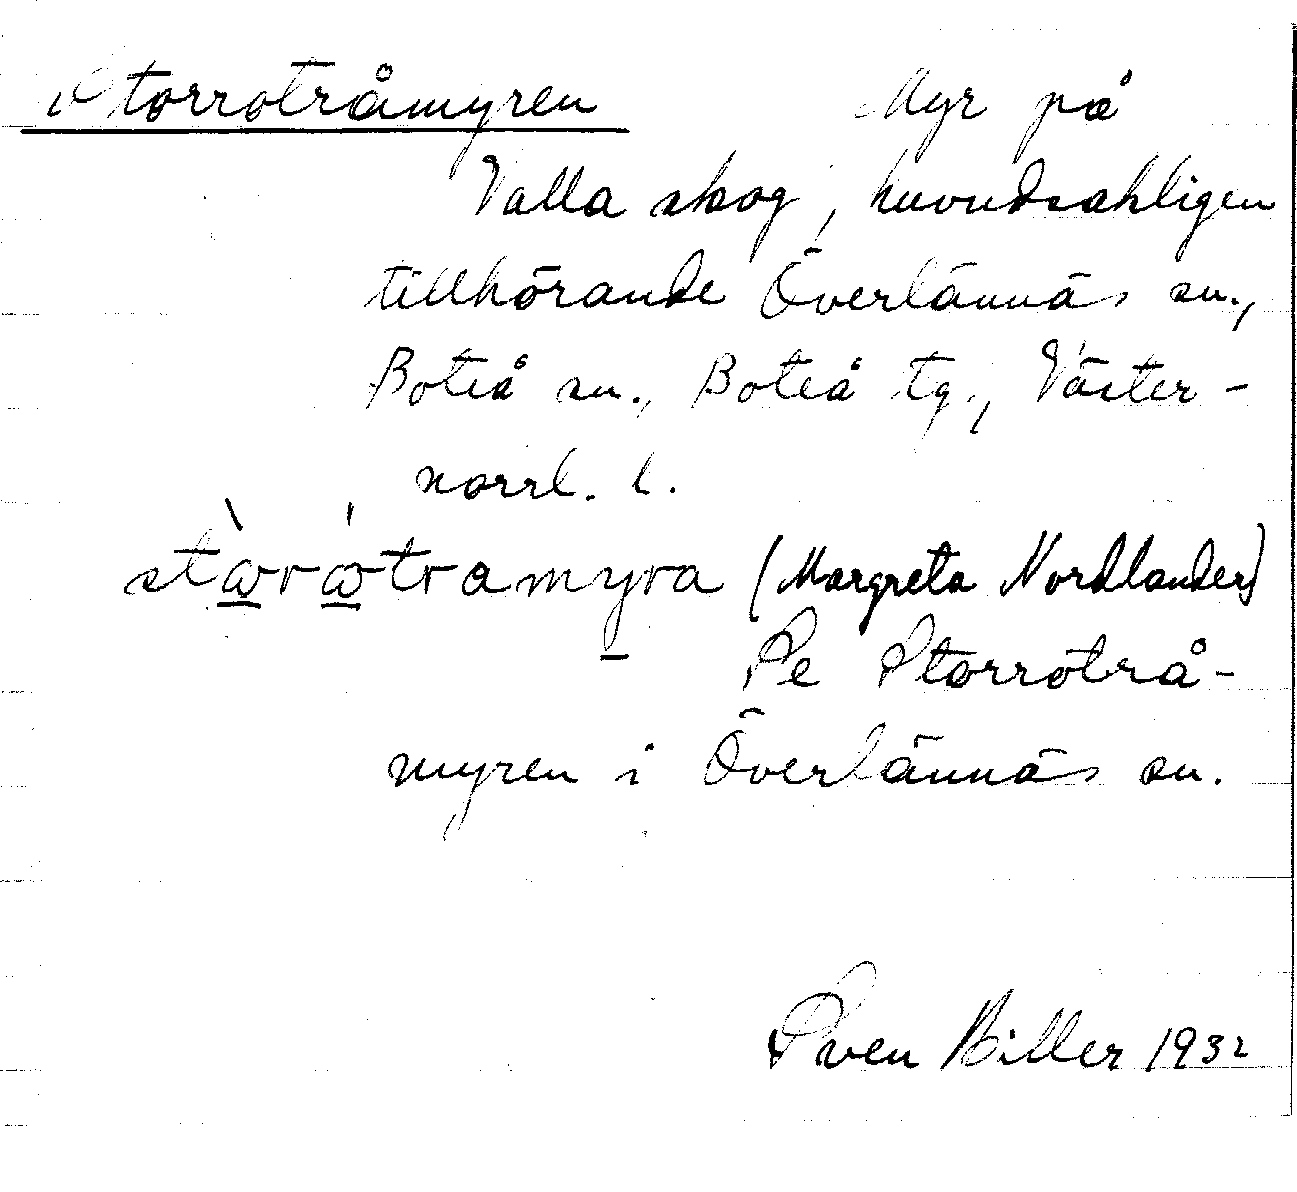 Storroträmyren Myr på
Valla skog, huvudsakligen
tillhörande Överlännäs sn.,
Boteå sn., Boteå tg., Väster-
norrl. l.
(Margreta Nordlander)
Se Storrotrå-
myren i Överlännäs sn.
Sven Biller 1932